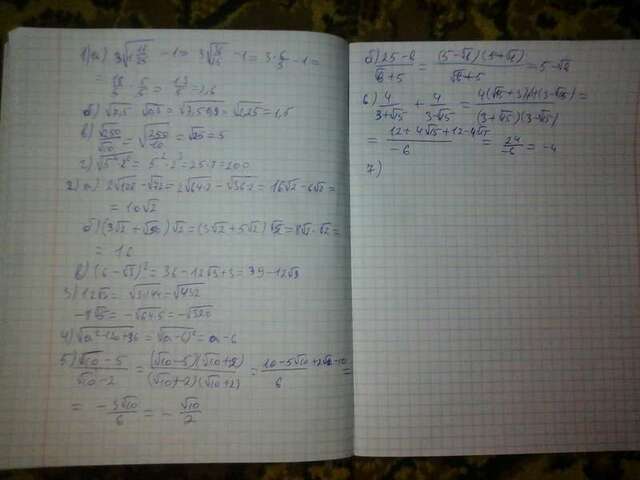 1) а) 3√1 11/25 - 1 = 3√36/25 - 1 = 3·6/5 - 1 =
= 18/5 - 5/5 = 13/5 = 2,6
б) √7,5 · √0,3 = √7,5·0,3 = √2,25 = 1,5
в) √250/√10 = √250/10 = √25 = 5
= 5² · 2³ = 25·
2) а) 2√128 - √72 = 2√64·2 - √36·2 = 16√2 - 6√2 =
= 10√2
б) (3√2 + √50) √2 = (3√2 + 5√2) √2 = 8√2 · √2 =
= 16
в) (6 - √3)² = 36 - 12√3 + 3 = 39 - 12√3
3) 12√3 = √3·144 = √432
-8√5 = -√64·5 = -√320
4) √а² - 12а + 36 = √(а-6)² = а - 6
5) √10 - 5 / √10 - 2 = (√10 - 5)(√10 + 2) / (√10 + 2)(√10 + 2) = 10 - 5√10 + 2√10 - 10 / 6 =
= - 3√10/6 = - √10/2
б) 25 - 6 / √6 + 5 = (5 - √6)(5 + √6) / √6 + 5 = 5 - √6
6) 4 / 3 + √15 + 4 / 3 - √15 = 4(√15 + 3) + 4(3 - √15) / (3 + √15)(3 - √15) =
= 12 + 4√15 + 12 - 4√15 / -6 = 24/-6 = -4
7)